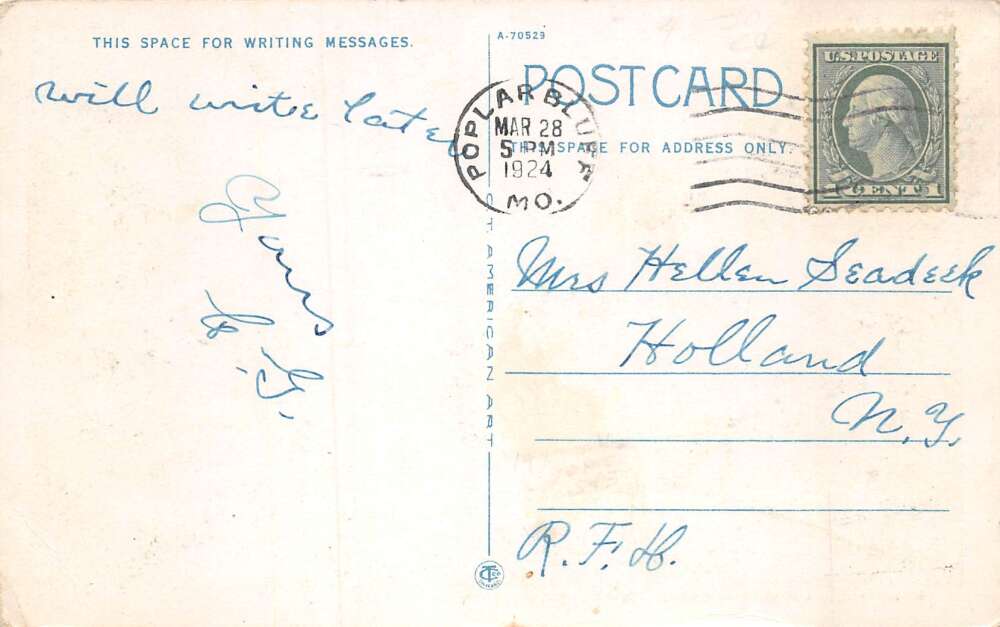 THIS SPACE FOR WRITING MESSAGES.
will write later
Yours
G.
A-70529
POST CARD
THIS SPACE FOR ADDRESS ONLY.
POPLAR BLUFF
MAR 28
5 PM
1924
MO.
U.S. POSTAGE
1 CENT 1
C.T. AMERICAN ART
Mrs Hellen Seadeek
Holland
N.Y.
R.F.D.